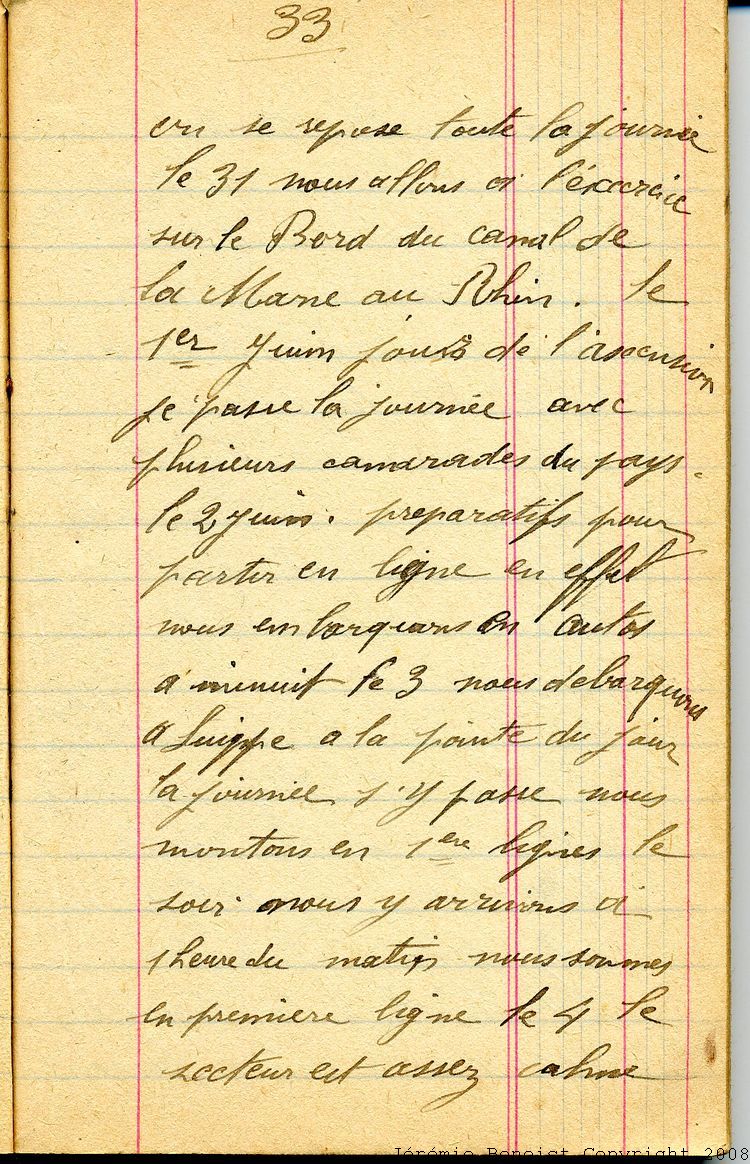 33
on se repose toute la journée
le 31 nous allons à l'éxcercice
sur le Bord du canal de
la Marne au Rhin. le
1er Juin jours de l'ascension
je passe la journée avec
plusieurs camarades du pays.
le 2 Juin. preparatifs pour
partir en ligne en effet
nous embarquons en autos
a minuit le 3 nous debarquons
a Suippe a la pointe du jour
la journée s'y passe nous
montons en 1ere lignes le
soir nous y arrivons a
1 heure du matin nous sommes
en premiere ligne le 4 le
secteur est assez calme
Jérémie Benoist Copyright 2008